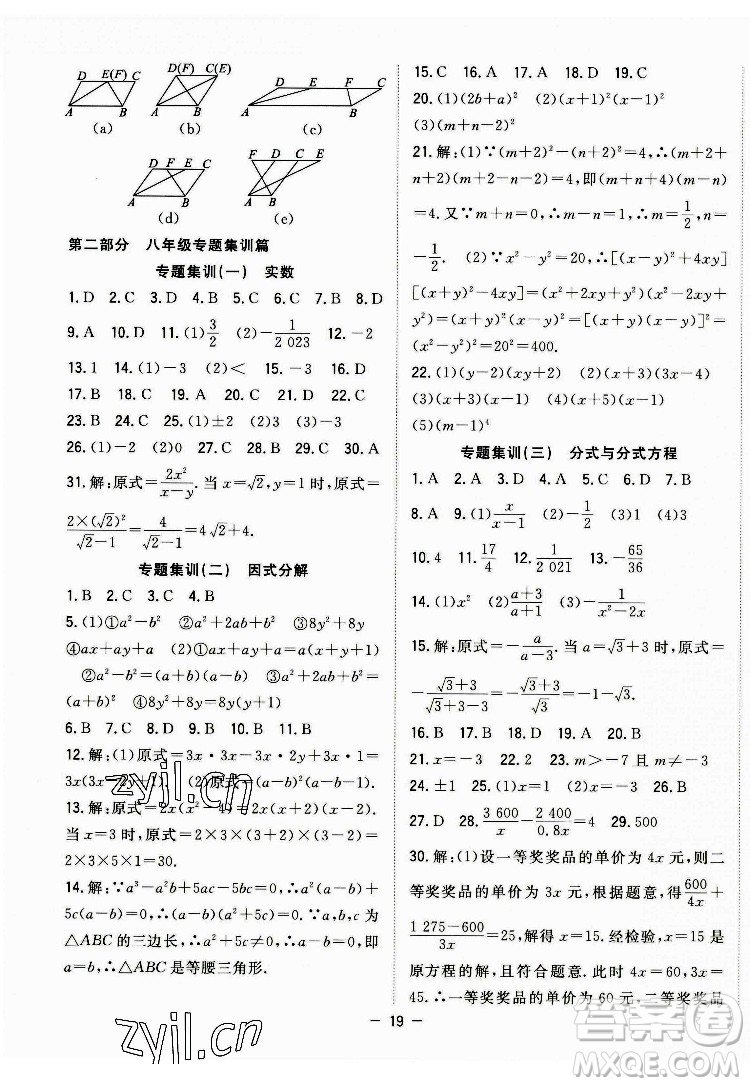 D E(F) C D(F) C(E) D E F C
A B A B A B
(a) (b) (c)
D F E C F D C E
A B A B
(d) (e)
第二部分 八年级专题集训篇
专题集训(一) 实数
1. D 2. C 3. C 4. D 5. C 6. C 7. B 8. D
9. A 10. D 11. (1)3/2 (2)-1/2 023 12. -2
13. 1 14. (1)-3 (2)< 15. -3 16. D
17. B 18. D 19. D 20. B 21. D 22. C
23. B 24. C 25. (1)±2 (2)3 (3)-3
26. (1)-2 (2)0 27. B 28. C 29. B 30. A
31. 解:原式=2x²/(x-y). 当 x=√2, y=1 时, 原式=
2×(√2)²/(√2-1)=4/(√2-1)=4√2+4.
专题集训(二) 因式分解
1. B 2. C 3. C 4. B
5. (1)①a²-b² ②a²+2ab+b² ③8y²+8y
④ax+ay+a (2)①ax+ay+a=a(x+y+1)
②a²-b²=(a+b)(a-b) ③a²+2ab+b²=
(a+b)² ④8y²+8y=8y(y+1)
6. B 7. B 8. D 9. B 10. B 11. B
12. 解:(1)原式=3x·3x-3x·2y+3x=
3x(3x-2y+1). (2)原式=(a-b)²(a-b+1).
13. 解:原式=2x(x²-4)=2x(x+2)(x-2).
当 x=3 时, 原式=2×3×(3+2)×(3-2)=
2×3×5×1=30.
14. 解:∵a²-b²+5ac-5bc=0, ∴(a-b)(a+b)+
5c(a-b)=0, ∴(a-b)(a+b+5c)=0. ∵a,b,c 为
△ABC 的三边长, ∴a+b+5c>0, ∴a-b=0, 即
a=b, ∴△ABC 是等腰三角形.
15. C 16. A 17. D 18. D 19. C
20. (1)(2b+a)² (2)(x+1)²(x-1)²
(3)(m+n-2)²
21. 解:(1)∵(m+2)²-(n+2)²=4, ∴(m+2+
n+2)(m+2-n-2)=4, 即(m+n+4)(m-n)
=4. 又∵m+n=4, ∴m-n=1/2, ∴n-m=
-1/2. (2)∵x²-y²=20, ∴[(x+y)²+4xy]
[(x+y)²-4xy](x-y)²=[(x+y)(x-y)]²=
(x²-y²)²=20²=400.
22. (1)(y-2)(y+2) (2)(x+3)(x-4)
(3)(x+3)(x-1) (4)(x+2)²(x-2)²
(5)(m-1)⁴
专题集训(三) 分式与分式方程
1. A 2. A 3. D 4. D 5. A 6. B 7. A
8. A 9. (1)x/(x-1) (2)-1/a (3)1 (4)3
10. 4 11. 17/4 12. 1/2 021 13. -65/36
14. (1)x² (2)(a+3)/(a+1) (3)-1/(x²-x)
15. 解:原式=-a/(a-3). 当 a=√3+3 时, 原式=
-(√3+3)/(√3+3-3)=-(√3+3)/√3=-1-√3.
16. B 17. D 18. D 19. C 20. D
21. x=-3 22. x=-5 23. m>-7 且 m≠-3
24. ±1 25. (1)x=4 (2)x=3 26. B
27. D 28. 3 600/x-2 400/0.8x=4 29. 500
30. 解:(1)设一等奖奖品的单价为 4x 元, 则二
等奖奖品的单价为 3x 元, 根据题意, 得600/4x+
(1 275-600)/3x=25, 解得 x=15. 经检验, x=15 是
原方程的解, 且符合题意. 此时 4x=60, 3x=
45. ∴一等奖奖品的单价为 60 元, 二等奖奖品
- 19 -
zyjl.cn
zyjl.cn
答案圈
MXQE.COM